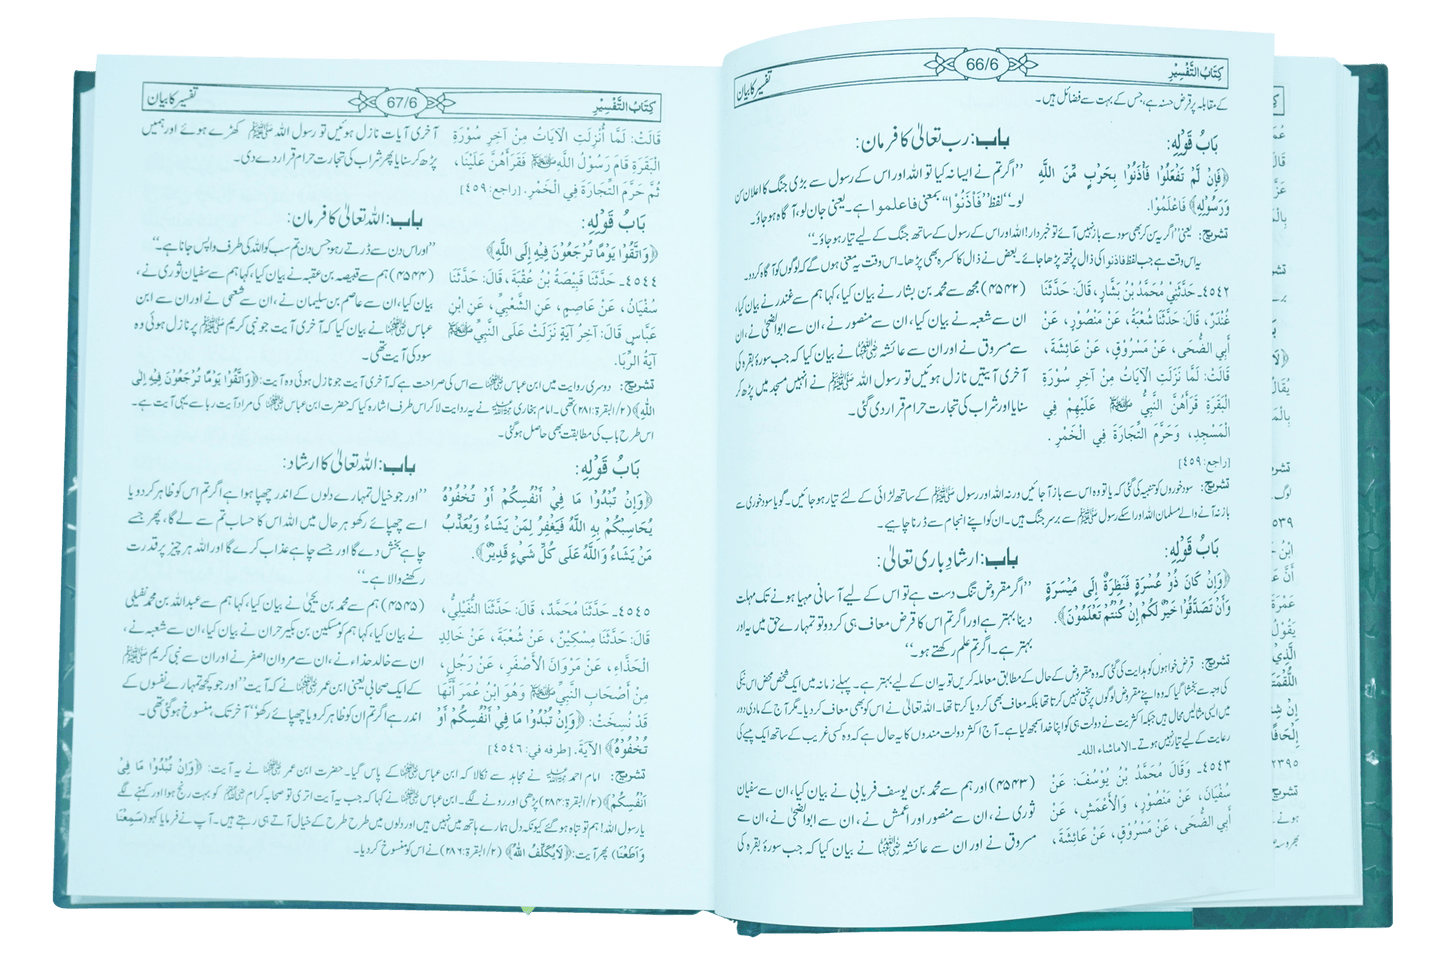 كِتَابُ التَّفْسِيْرِ
66/6
تفسیر کا بیان
کے مقابلہ پر قرض حسنہ ہے، جس کے بہت سے فضائل ہیں۔
بَابُ قَوْلِهِ:
﴿فَإِنْ لَّمْ تَفْعَلُوْا فَأْذَنُوْا بِحَرْبٍ مِّنَ اللَّهِ
وَرَسُوْلِهِ﴾ فَاعْلَمُوْا.
باب: رب تعالیٰ کا فرمان:
’’اگر تم نے ایسا نہ کیا تو اللہ اور اس کے رسول سے بڑی جنگ کا اعلان سن
لو۔‘‘ لفظ ’’فَأْذَنُوْا‘‘ بمعنی فاعلموا ہے۔ یعنی جان لو، آگاہ ہو جاؤ۔
تشریح: یعنی ’’اگر یہ سن کر بھی سود سے باز نہیں آئے تو خبردار! اللہ اور اس کے رسول کے ساتھ جنگ کے لیے تیار ہو جاؤ۔‘‘
یہ اس وقت ہے جب لفظ فاذنوا کی ذال پر فتحہ پڑھا جائے۔ بعض نے ذال کا کسرہ بھی پڑھا۔ اس وقت یہ معنی ہوں گے کہ لوگوں کو آگاہ کر دو۔
٤٥٤٢۔ حَدَّثَنِيْ مُحَمَّدُ بْنُ بَشَّارٍ، قَالَ: حَدَّثَنَا
غُنْدَرٌ، قَالَ: حَدَّثَنَا شُعْبَةُ، عَنْ مَنْصُوْرٍ، عَنْ
أَبِي الضُّحَى، عَنْ مَسْرُوْقٍ، عَنْ عَائِشَةَ،
قَالَتْ: لَمَّا نَزَلَتِ الْآيَاتُ مِنْ آخِرِ سُوْرَةِ
الْبَقَرَةِ قَرَأَهُنَّ النَّبِيُّ ﷺ عَلَيْهِمْ فِي
الْمَسْجِدِ، وَحَرَّمَ التِّجَارَةَ فِي الْخَمْرِ.
[راجع: ٤٥٩]
(۴۵۴۲) مجھ سے محمد بن بشار نے بیان کیا، کہا ہم سے غندر نے بیان کیا،
ان سے شعبہ نے بیان کیا، ان سے منصور نے، ان سے ابوالضحیٰ نے، ان
سے مسروق نے اور ان سے عائشہ رضی اللہ عنہا نے بیان کیا کہ جب سورۂ بقرہ کی
آخری آیتیں نازل ہوئیں تو رسول اللہ ﷺ نے انہیں مسجد میں پڑھ کر
سنایا اور شراب کی تجارت حرام قرار دی گئی۔
تشریح: سود خوروں کو تنبیہ کی گئی کہ یا تو وہ اس سے باز آ جائیں ورنہ اللہ اور رسول ﷺ کے ساتھ لڑائی کے لئے تیار ہو جائیں۔ گویا سود خوری سے
باز نہ آنے والے مسلمان اللہ اور اسکے رسول ﷺ سے برسر جنگ ہیں۔ ان کو اپنے انجام سے ڈرنا چاہیے۔
بَابُ قَوْلِهِ:
﴿وَإِنْ كَانَ ذُوْ عُسْرَةٍ فَنَظِرَةٌ إِلَى مَيْسَرَةٍ
وَأَنْ تَصَدَّقُوْا خَيْرٌ لَّكُمْ إِنْ كُنْتُمْ تَعْلَمُوْنَ﴾.
باب: ارشاد باری تعالیٰ:
’’اگر مقروض تنگ دست ہے تو اس کے لیے آسانی مہیا ہونے تک مہلت
دینا بہتر ہے اور اگر تم اس کا قرض معاف ہی کر دو تو تمہارے حق میں یہ اور
بہتر ہے۔ اگر تم علم رکھتے ہو۔‘‘
تشریح: قرض خواہوں کو ہدایت کی گئی کہ وہ مقروض کے حال کے مطابق معاملہ کریں تو یہ ان کے لیے بہتر ہے۔ پہلے زمانہ میں ایک شخص محض اس نیکی
کی وجہ سے بخشا گیا کہ وہ اپنے مقروض لوگوں پر سختی نہیں کرتا تھا بلکہ معاف بھی کر دیا کرتا تھا۔ اللہ تعالیٰ نے اس کو بھی معاف کر دیا۔ مگر آج کے مادی دور
میں ایسی مثالیں محال ہیں جبکہ اکثریت نے دولت ہی کو اپنا خدا سمجھ لیا ہے۔ آج اکثر دولت مندوں کا یہ حال ہے کہ وہ کسی غریب کے ساتھ ایک پیسے کی
رعایت کے لیے تیار نہیں ہوتے۔ الا ماشاء اللہ۔
٤٥٤٣۔ وَقَالَ مُحَمَّدُ بْنُ يُوْسُفَ: عَنْ
سُفْيَانَ، عَنْ مَنْصُوْرٍ، وَالْأَعْمَشِ، عَنْ
أَبِي الضُّحَى، عَنْ مَسْرُوْقٍ، عَنْ عَائِشَةَ،
(۴۵۴۳) اور ہم سے محمد بن یوسف فریابی نے بیان کیا، ان سے سفیان
ثوری نے، ان سے منصور اور اعمش نے، ان سے ابوالضحیٰ نے، ان سے
مسروق نے اور ان سے عائشہ رضی اللہ عنہا نے بیان کیا کہ جب سورۂ بقرہ کی
كِتَابُ التَّفْسِيْرِ
67/6
تفسیر کا بیان
قَالَتْ: لَمَّا أُنْزِلَتِ الْآيَاتُ مِنْ آخِرِ سُوْرَةِ
الْبَقَرَةِ قَامَ رَسُوْلُ اللَّهِ ﷺ فَقَرَأَهُنَّ عَلَيْنَا،
ثُمَّ حَرَّمَ التِّجَارَةَ فِي الْخَمْرِ. [راجع: ٤٥٩]
آخری آیات نازل ہوئیں تو رسول اللہ ﷺ کھڑے ہوئے اور ہمیں
پڑھ کر سنایا پھر شراب کی تجارت حرام قرار دے دی۔
بَابُ قَوْلِهِ:
﴿وَاتَّقُوْا يَوْمًا تُرْجَعُوْنَ فِيْهِ إِلَى اللَّهِ﴾
باب: اللہ تعالیٰ کا فرمان:
’’اور اس دن سے ڈرتے رہو جس دن تم سب کو اللہ کی طرف واپس جانا ہے۔‘‘
٤٥٤٤۔ حَدَّثَنَا قَبِيْصَةُ بْنُ عُقْبَةَ، قَالَ: حَدَّثَنَا
سُفْيَانُ، عَنْ عَاصِمٍ، عَنِ الشَّعْبِيِّ، عَنِ ابْنِ
عَبَّاسٍ قَالَ: آخِرُ آيَةٍ نَزَلَتْ عَلَى النَّبِيِّ ﷺ
آيَةُ الرِّبَا.
(۴۵۴۴) ہم سے قبیصہ بن عقبہ نے بیان کیا، کہا ہم سے سفیان ثوری نے،
بیان کیا، ان سے عاصم بن سلیمان نے، ان سے شعبی نے اور ان سے ابن
عباس رضی اللہ عنہما نے بیان کیا کہ آخری آیت جو نبی کریم ﷺ پر نازل ہوئی وہ
سود کی آیت تھی۔
تشریح: دوسری روایت میں ابن عباس رضی اللہ عنہما سے اس کی صراحت ہے کہ آخری آیت جو نازل ہوئی وہ آیت: ﴿وَاتَّقُوْا يَوْمًا تُرْجَعُوْنَ فِيْهِ إِلَى
اللَّهِ﴾ (۲/البقرۃ:۲۸۱) تھی۔ امام بخاری رحمہ اللہ نے یہ روایت لا کر اس طرف اشارہ کیا کہ حضرت ابن عباس رضی اللہ عنہما کی مراد آیت ربا سے یہی آیت ہے۔
اس طرح باب کی مطابقت بھی حاصل ہو گئی۔
بَابُ قَوْلِهِ:
﴿وَإِنْ تُبْدُوْا مَا فِيْ أَنْفُسِكُمْ أَوْ تُخْفُوْهُ
يُحَاسِبْكُمْ بِهِ اللَّهُ فَيَغْفِرُ لِمَنْ يَشَاءُ وَيُعَذِّبُ
مَنْ يَشَاءُ وَاللَّهُ عَلَى كُلِّ شَيْءٍ قَدِيْرٌ﴾.
باب: اللہ تعالیٰ کا ارشاد:
’’اور جو خیال تمہارے دلوں کے اندر چھپا ہوا ہے اگر تم اس کو ظاہر کر دو یا
اسے چھپائے رکھو ہر حال میں اللہ اس کا حساب تم سے لے گا، پھر جسے
چاہے بخش دے گا اور جسے چاہے عذاب کرے گا اور اللہ ہر چیز پر قدرت
رکھنے والا ہے۔‘‘
٤٥٤٥۔ حَدَّثَنَا مُحَمَّدٌ، قَالَ: حَدَّثَنَا النُّفَيْلِيُّ،
قَالَ: حَدَّثَنَا مِسْكِيْنٌ، عَنْ شُعْبَةَ، عَنْ خَالِدٍ
الْحَذَّاءِ، عَنْ مَرْوَانَ الْأَصْفَرِ، عَنْ رَجُلٍ،
مِنْ أَصْحَابِ النَّبِيِّ ﷺ وَهُوَ ابْنُ عُمَرَ أَنَّهَا
قَدْ نُسِخَتْ: ﴿وَإِنْ تُبْدُوْا مَا فِيْ أَنْفُسِكُمْ أَوْ
تُخْفُوْهُ﴾ الآيَةَ. [طرفه في: ٤٥٤٦]
(۴۵۴۵) ہم سے محمد بن یحییٰ نے بیان کیا، کہا ہم سے عبداللہ بن محمد نفیلی
نے بیان کیا، کہا ہم کو مسکین بن بکیر حران نے بیان کیا، ان سے شعبہ نے،
ان سے خالد حذاء نے، ان سے مروان اصفر نے اور ان سے نبی کریم ﷺ
کے ایک صحابی یعنی ابن عمر رضی اللہ عنہما نے کہ آیت ’’اور جو کچھ تمہارے نفسوں کے
اندر ہے اگر تم ان کو ظاہر کرو یا چھپائے رکھو‘‘ آخر تک منسوخ ہو گئی تھی۔
تشریح: امام احمد رحمہ اللہ نے مجاہد سے نکالا کہ ابن عباس رضی اللہ عنہما کے پاس گیا۔ حضرت ابن عمر رضی اللہ عنہما نے یہ آیت: ﴿وَإِنْ تُبْدُوْا مَا فِيْ
أَنْفُسِكُمْ﴾ (۲/البقرۃ:۲۸۴) پڑھی اور رونے لگے۔ ابن عباس رضی اللہ عنہما نے کہا کہ جب یہ آیت اتری تو صحابہ کرام کو بہت رنج ہوا اور کہنے لگے
یا رسول اللہ! ہم تو تباہ ہو گئے کیونکہ دل ہمارے ہاتھ میں نہیں ہیں اور دلوں میں طرح طرح کے خیال آتے ہی رہتے ہیں۔ آپ نے فرمایا کہو (سَمِعْنَا
وَأَطَعْنَا) پھر آیت: ﴿لَا يُكَلِّفُ اللَّهُ﴾ (۲/البقرۃ:۲۸۶) نے اس کو منسوخ کر دیا۔